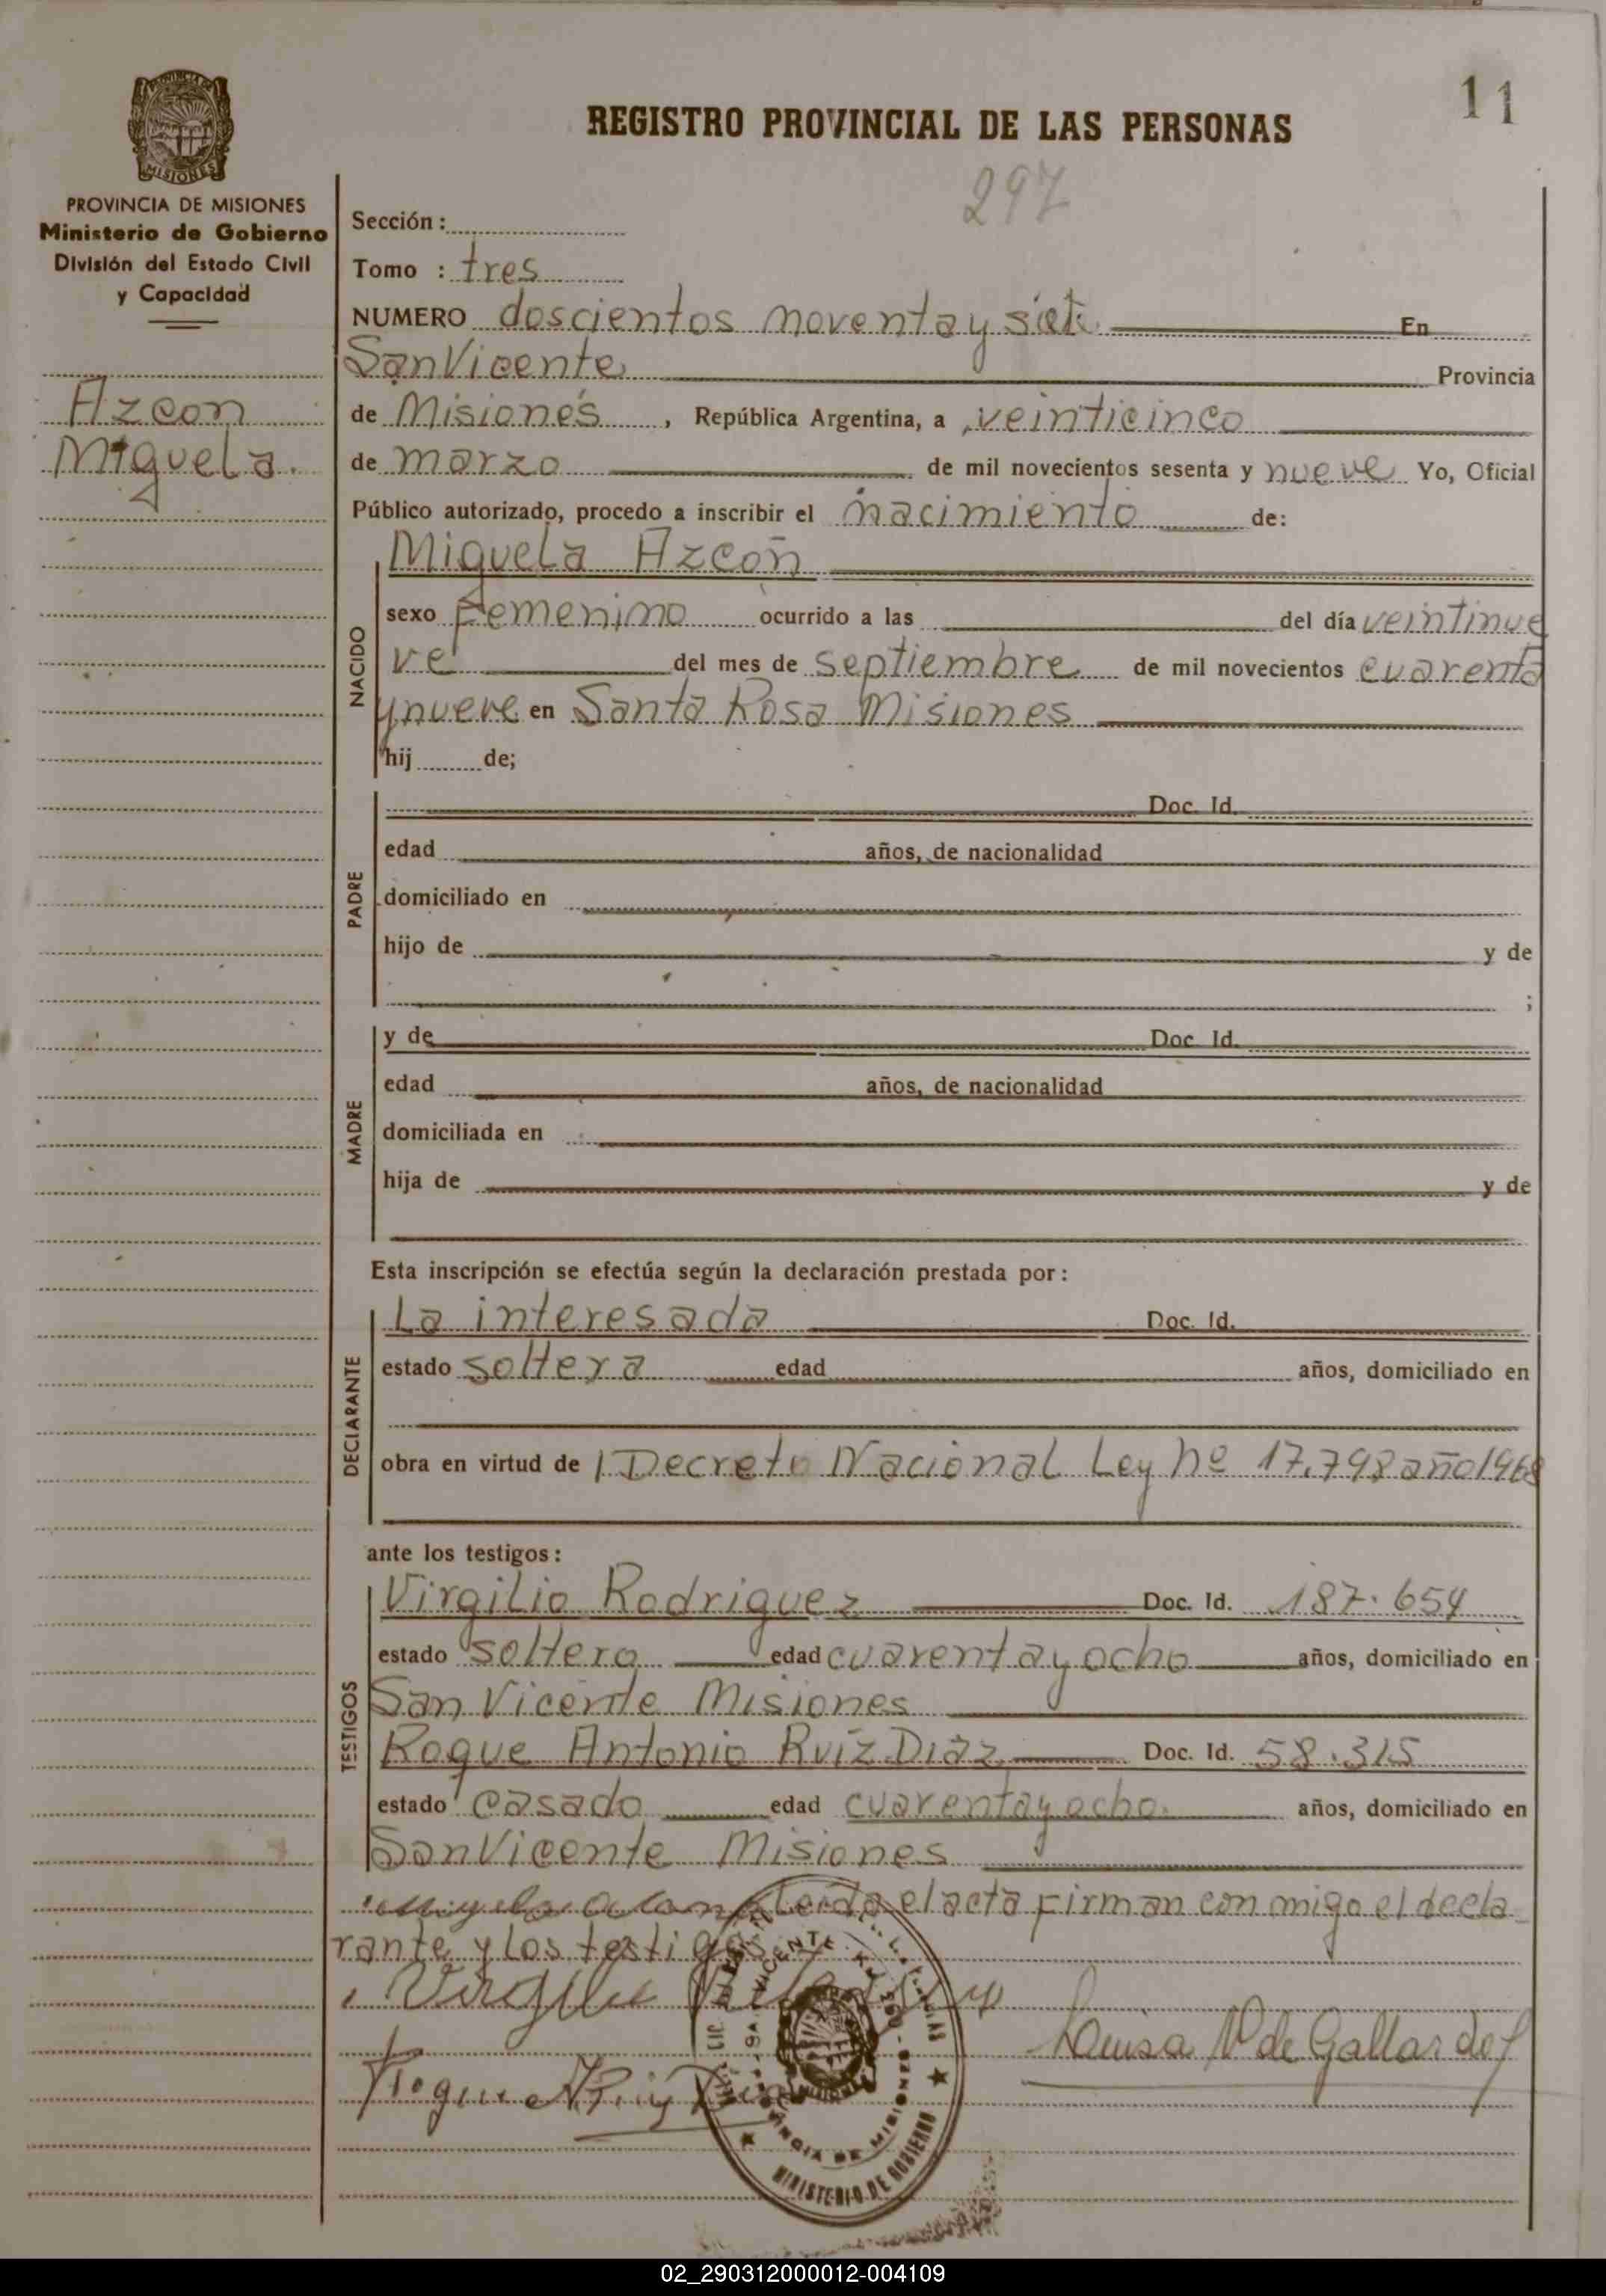 11
REGISTRO PROVINCIAL DE LAS PERSONAS
297
MISIONES
PROVINCIA DE MISIONES
Ministerio de Gobierno
División del Estado Civil
y Capacidad
Azcon
Miguela.
Sección :
Tomo : tres
NUMERO doscientos noventa y siete En
San Vicente Provincia
de Misiones , República Argentina, a veinticinco
de marzo de mil novecientos sesenta y nueve Yo, Oficial
Público autorizado, procedo a inscribir el nacimiento de:
NACIDO
Miguela Azcon
sexo Femenino ocurrido a las del día veintinue
ve del mes de septiembre de mil novecientos cuarenta
y nueve en Santa Rosa Misiones
hij de;
PADRE
Doc. Id.
edad años, de nacionalidad
domiciliado en
hijo de y de
;
MADRE
y de Doc. Id.
edad años, de nacionalidad
domiciliada en
hija de y de
Esta inscripción se efectúa según la declaración prestada por :
DECLARANTE
La interesada Doc. Id.
estado soltera edad años, domiciliado en
obra en virtud de Decreto Nacional Ley Nº 17.798 año 1968
ante los testigos :
TESTIGOS
Virgilio Rodriguez Doc. Id. 187.654
estado soltero edad cuarenta y ocho años, domiciliado en
San Vicente Misiones
Roque Antonio Ruiz Diaz Doc. Id. 58.315
estado casado edad cuarenta y ocho. años, domiciliado en
San Vicente Misiones
Leida el acta firman con migo el decla
rante y los testigos
Virgilio
Luisa N de Gallardo
Roque A Ruiz Diaz
VICENTE
MISIONES
PROVINCIA DE MISIONES
MINISTERIO DE GOBIERNO
02_290312000012-004109